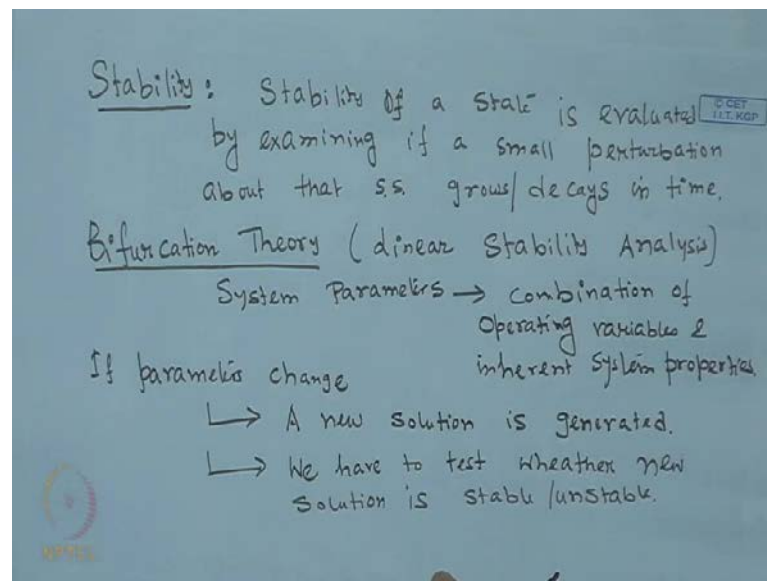 Stability: Stability of a state is evaluated
© CET
I.I.T. KGP
by examining if a small perturbation
about that s.s. grows/decays in time.
Bifurcation Theory (Linear Stability Analysis)
System Parameters → Combination of
Operating variables &
inherent System properties.
If parameters change
↳ A new solution is generated.
↳ We have to test wheather new
Solution is stable/unstable.
NPTEL